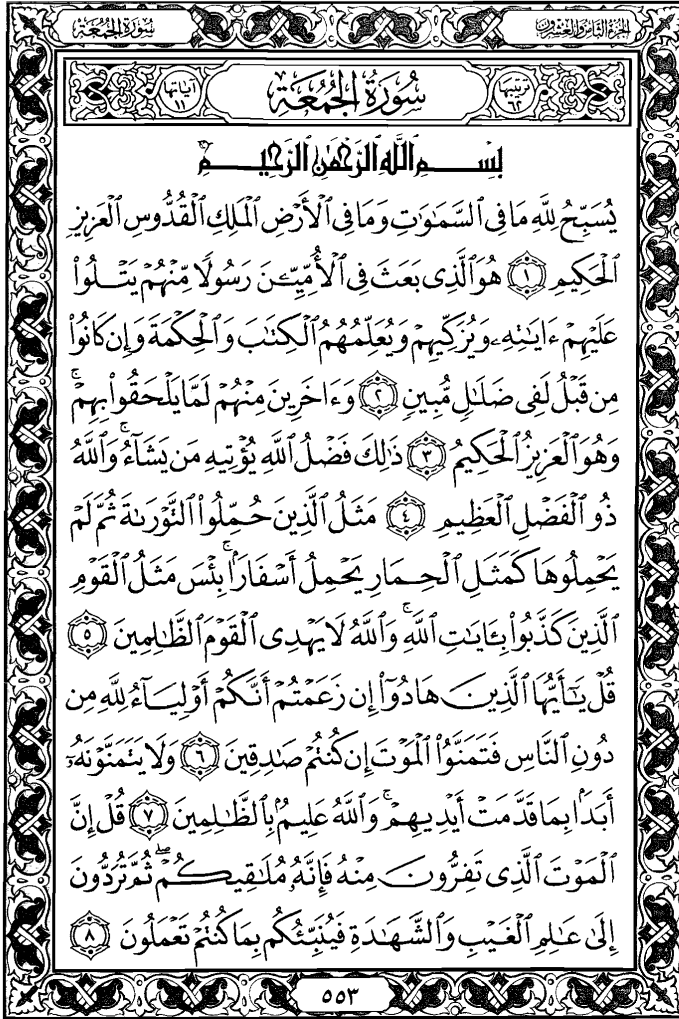 الجزء الثامن والعشرون
سُورَةُ الجُمُعَةِ
ترتيبها ٦٢
سُورَةُ الجُمُعَةِ
آياتها ١١
بِسْمِ ٱللَّهِ ٱلرَّحْمَٰنِ ٱلرَّحِيمِ
يُسَبِّحُ لِلَّهِ مَا فِى ٱلسَّمَٰوَٰتِ وَمَا فِى ٱلْأَرْضِ ٱلْمَلِكِ ٱلْقُدُّوسِ ٱلْعَزِيزِ
ٱلْحَكِيمِ ١ هُوَ ٱلَّذِى بَعَثَ فِى ٱلْأُمِّيِّۦنَ رَسُولًا مِّنْهُمْ يَتْلُوا۟
عَلَيْهِمْ ءَايَٰتِهِۦ وَيُزَكِّيهِمْ وَيُعَلِّمُهُمُ ٱلْكِتَٰبَ وَٱلْحِكْمَةَ وَإِن كَانُوا۟
مِن قَبْلُ لَفِى ضَلَٰلٍ مُّبِينٍ ٢ وَءَاخَرِينَ مِنْهُمْ لَمَّا يَلْحَقُوا۟ بِهِمْ ۚ
وَهُوَ ٱلْعَزِيزُ ٱلْحَكِيمُ ٣ ذَٰلِكَ فَضْلُ ٱللَّهِ يُؤْتِيهِ مَن يَشَآءُ ۚ وَٱللَّهُ
ذُو ٱلْفَضْلِ ٱلْعَظِيمِ ٤ مَثَلُ ٱلَّذِينَ حُمِّلُوا۟ ٱلتَّوْرَىٰةَ ثُمَّ لَمْ
يَحْمِلُوهَا كَمَثَلِ ٱلْحِمَارِ يَحْمِلُ أَسْفَارًۢا ۚ بِئْسَ مَثَلُ ٱلْقَوْمِ
ٱلَّذِينَ كَذَّبُوا۟ بِـَٔايَٰتِ ٱللَّهِ ۚ وَٱللَّهُ لَا يَهْدِى ٱلْقَوْمَ ٱلظَّٰلِمِينَ ٥
قُلْ يَٰٓأَيُّهَا ٱلَّذِينَ هَادُوٓا۟ إِن زَعَمْتُمْ أَنَّكُمْ أَوْلِيَآءُ لِلَّهِ مِن
دُونِ ٱلنَّاسِ فَتَمَنَّوُا۟ ٱلْمَوْتَ إِن كُنتُمْ صَٰدِقِينَ ٦ وَلَا يَتَمَنَّوْنَهُۥٓ
أَبَدًۢا بِمَا قَدَّمَتْ أَيْدِيهِمْ ۚ وَٱللَّهُ عَلِيمٌۢ بِٱلظَّٰلِمِينَ ٧ قُلْ إِنَّ
ٱلْمَوْتَ ٱلَّذِى تَفِرُّونَ مِنْهُ فَإِنَّهُۥ مُلَٰقِيكُمْ ۖ ثُمَّ تُرَدُّونَ
إِلَىٰ عَٰلِمِ ٱلْغَيْبِ وَٱلشَّهَٰدَةِ فَيُنَبِّئُكُم بِمَا كُنتُمْ تَعْمَلُونَ ٨
٥٥٣